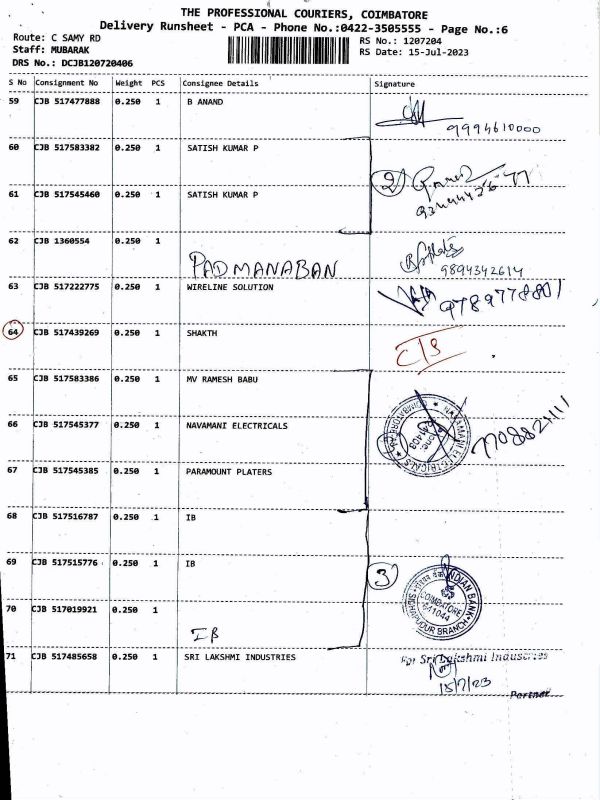 THE PROFESSIONAL COURIERS, COIMBATORE
Delivery Runsheet - PCA - Phone No.:0422-3505555 - Page No.:6
Route: C SAMY RD
RS No.: 1207204
Staff: MUBARAK
RS Date: 15-Jul-2023
DRS No.: DCJB120720406
S No Consignment No Weight PCS Consignee Details Signature
59 CJB 517477888 0.250 1 B ANAND
9994610000
60 CJB 517583382 0.250 1 SATISH KUMAR P
2
61 CJB 517545460 0.250 1 SATISH KUMAR P
62 CJB 1360554 0.250 1
PADMANABAN
9894342614
63 CJB 517222775 0.250 1 WIRELINE SOLUTION
9789778801
64 CJB 517439269 0.250 1 SHAKTH
C/S
65 CJB 517583386 0.250 1 MV RAMESH BABU
66 CJB 517545377 0.250 1 NAVAMANI ELECTRICALS
NAVAMANI ELECTRICALS
67 CJB 517545385 0.250 1 PARAMOUNT PLATERS
68 CJB 517516787 0.250 1 IB
69 CJB 517515776 0.250 1 IB
3
INDIAN BANK
COIMBATORE
641044
SIDHAPUDUR BRANCH
70 CJB 517019921 0.250 1
IB
71 CJB 517485658 0.250 1 SRI LAKSHMI INDUSTRIES
For Sri Lakshmi Industries
15/7/23
Partner